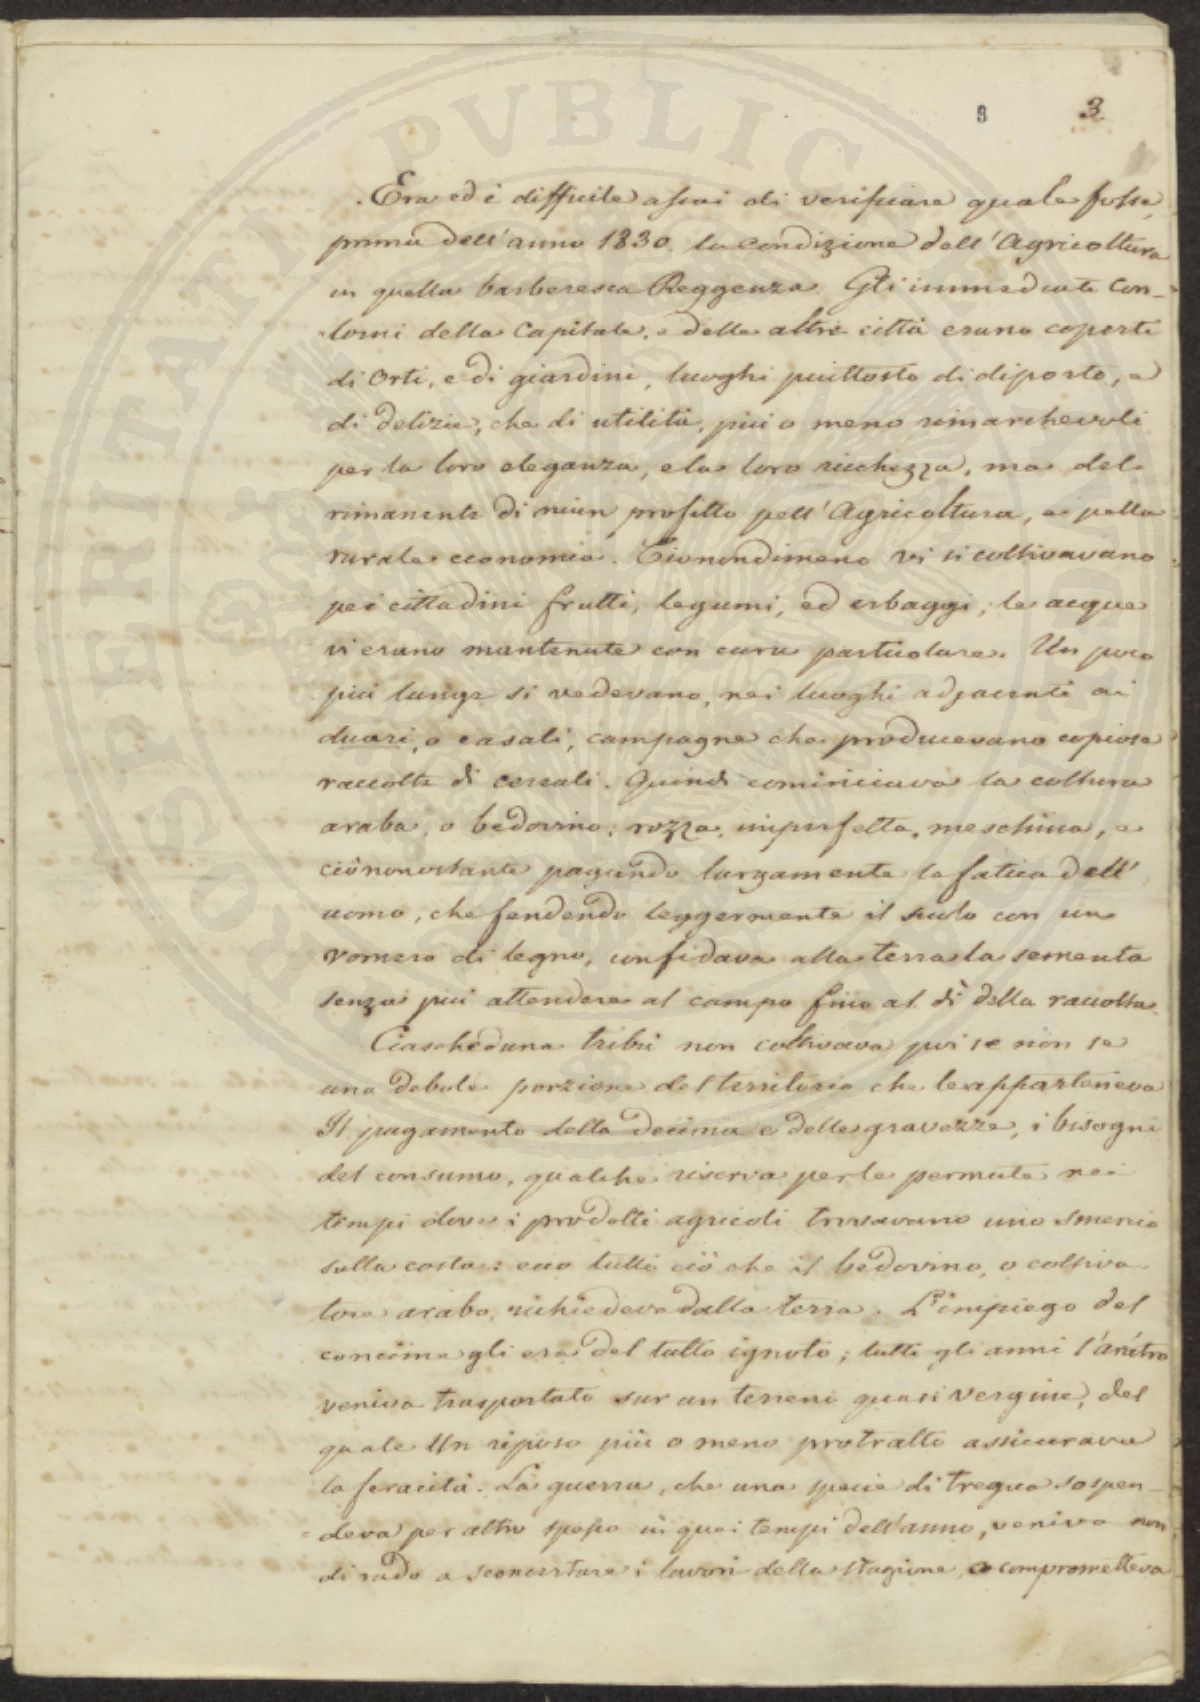 3
Era ed è difficile assai di verificare quale fosse,
prima dell'anno 1830. la condizione dell'Agricoltura
in quella barberesca Reggenza. Gli immediati con-
torni della Capitale, e delle altre città erano coperti
di Orti, e di giardini, luoghi piuttosto di diporto, e
di delizie, che di utilità, più o meno rimarchevoli
per la loro eleganza, e la loro ricchezza, ma del
rimanente di niun profitto pell'Agricoltura, e pella
rurale economia. Cionondimeno vi si coltivavano
pei cittadini frutti, legumi, ed erbaggi; le acque
vi erano mantenute con cura particolare. Un poco
più lungi si vedevano, nei luoghi adjacenti ai
duari, o casali, campagne che producevano copiose
raccolte di cereali. Quindi cominciava la coltura
araba, o bedovina, rozza, imperfetta, meschina, e
ciò nonostante pagando largamente la fatica dell'
uomo, che fendendo leggermente il suolo con un
vomero di legno, confidava alla terra la sementa
senza più attendere al campo fino al dì della raccolta.
Ciascheduna tribù non coltivava poi se non se
una debole porzione del territorio che le apparteneva
Il pagamento della decima e delle gravezze, i bisogni
del consumo, qualche riserva per le permute nei
tempi dove i prodotti agricoli trovavano uno smercio
sulla costa: ecco tutto ciò che il bedovino, o coltiva
tore arabo, richiedeva dalla terra. L'impiego del
concime gli era del tutto ignoto; tutti gli anni l'arátro
veniva trasportato sur un terreno quasi vergine, del
quale un riposo più o meno protratto assicurava
la feracità. La guerra, che una specie di tregua sospen-
deva per altro spesso in quei tempi dell'anno, veniva non
di rado a sconcertare i lavori della stagione, e comprometteva
PROSPERITATI PVBLIC